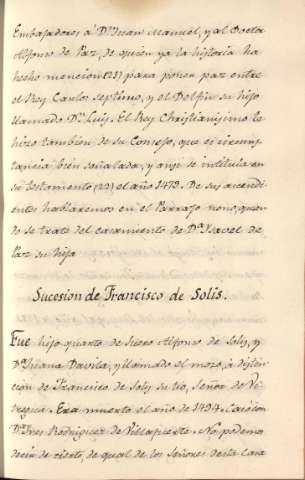 Embajadores á Dn Juan Manuel, y al Doctor
Alfonso de Paz, de quien ya la historia ha
hecho mencion (221) para poner paz entre
el Rey Carlos septimo, y el Delfin su hijo
llamado Dn Luis. El Rey Christianisimo le
hizo tambien de su Consejo, que es circuns,
tancia bien señalada, y ansi se intitula en
su testamento (222) el año 1479. De sus acendi-
entes hablaremos en el Parrafo nono, quan-
do se trate del casamiento de Da Isavel de
Paz su hija
Sucesion de Francisco de Solis.
Fue hijo quarto de Suero Alfonso de Solis, y
Da Juana Davila, y llamado el mozo, á distin-
cion de Francisco de Solis su tio, Señor de Ve-
tregua. Era muerto el año de 1494. Casó con
Da Ines Rodriguez de Villafuerte. No podemos
decir de cierto, de qual de los Señores desta Casa